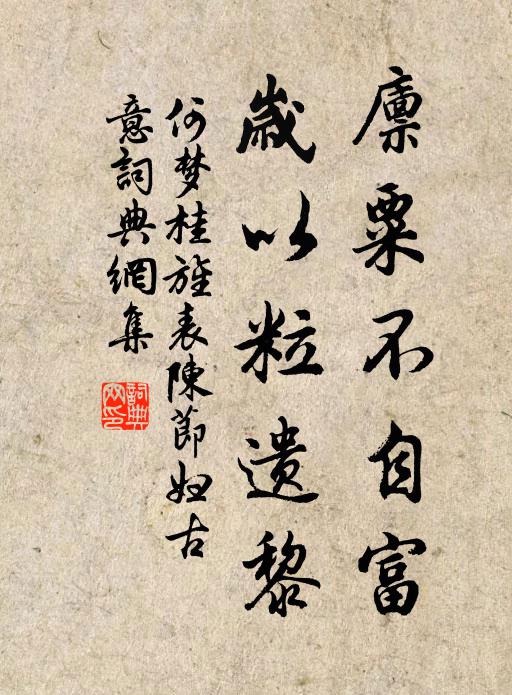 廩粟不自富
歲以粒遺黎
何梦桂旌表陳節婦古
意詞典網集
詞典
网印